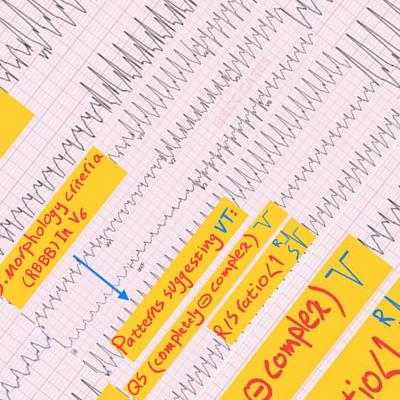 morphology criteria
(RBBB) In V6
Patterns suggesting VT:
QS (completely ⊖ complex) V
R/S ratio<1 R S
⊖ complex) V
tio<1 R/